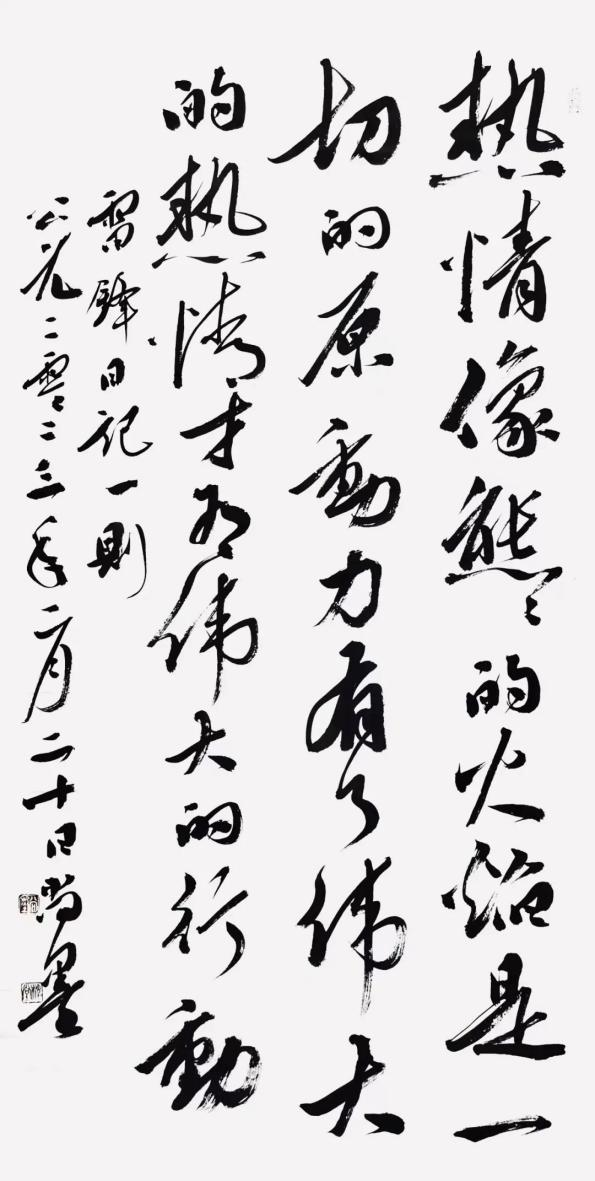 熱情像熊々的火焰是一
切的原動力有了伟大
的熱情才有伟大的行動
雷鋒日記一則
公元二零二三年二月二十日尚墨